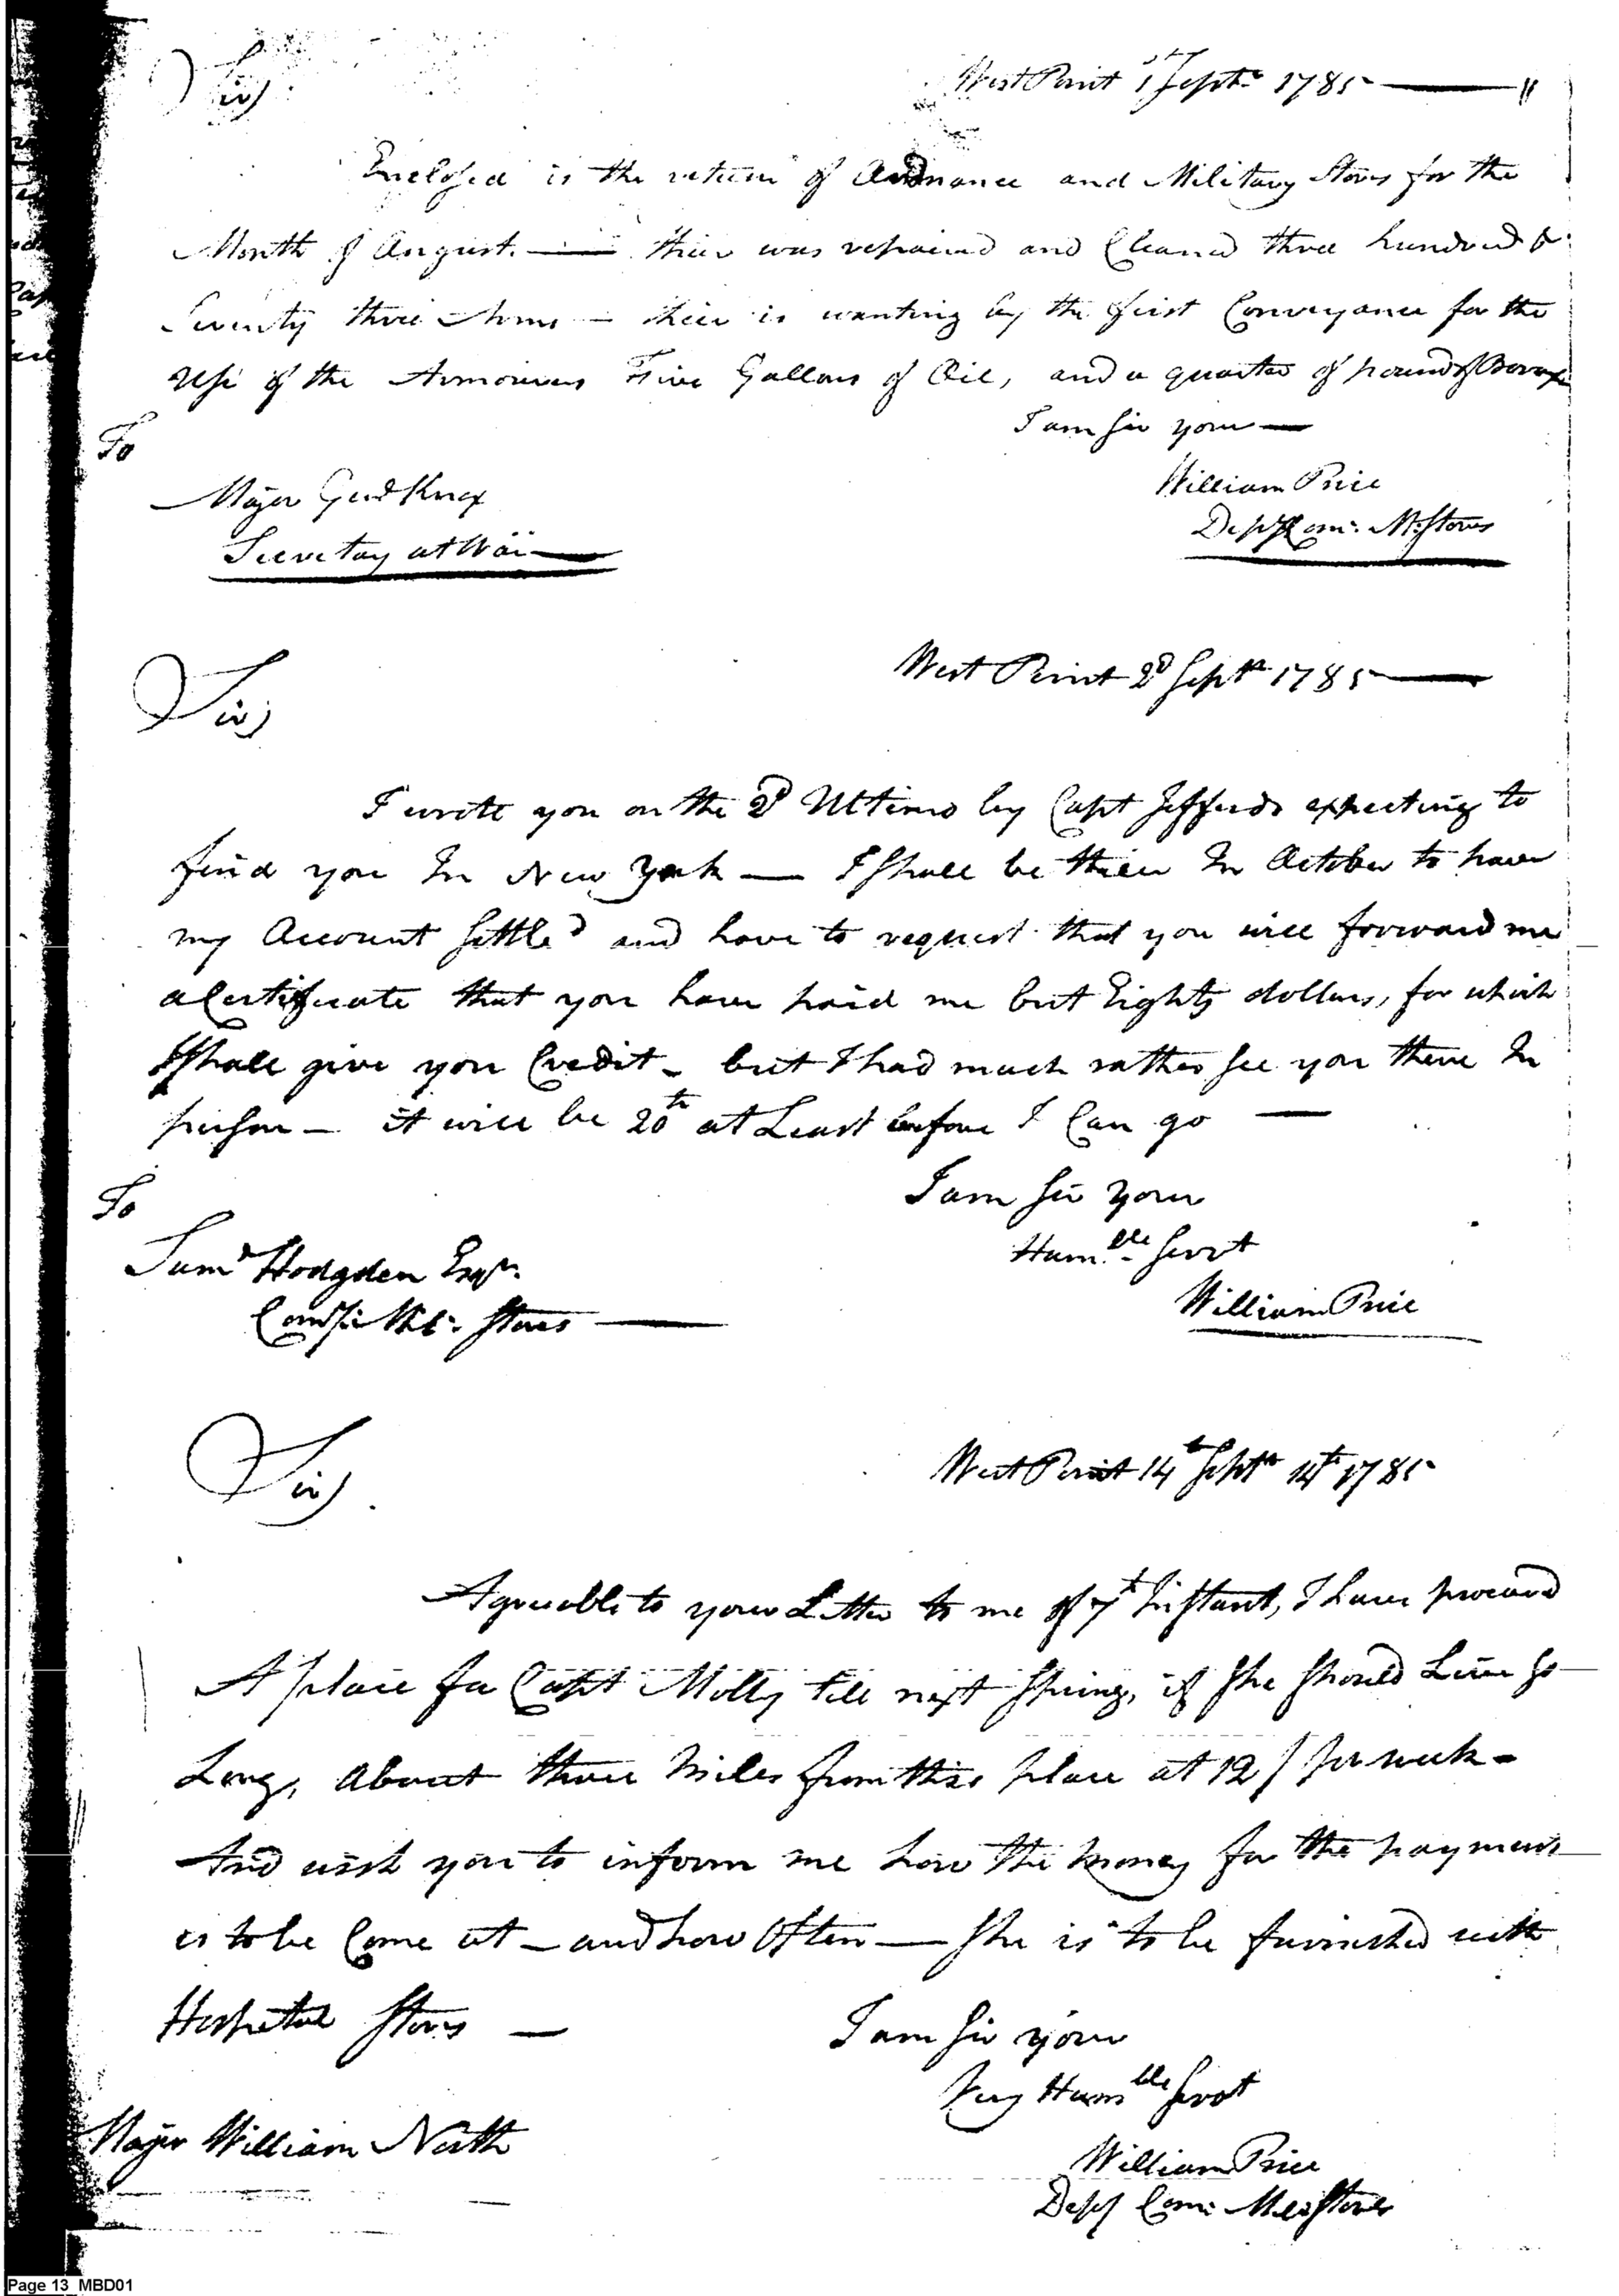 Sir,
West Point 1st Septr 1785
Enclosed is the return of Ordnance and Military Stores for the
Month of August. — thier was repaired and Cleaned three hundred &
Seventy three Arms — thier is wanting by the first Conveyance for the
use of the Armourers Five Gallons of Oil, and a quarter of pound of Borax
I am Sir your —
To
William Price
Major Genl Knox
Depy Com: M. Stores
Secretary at War
West Point 2d Septr 1785 —
Sir,
I wrote you on the 2d Ultimo by Capt Jeffords expecting to
find you In New York — I Shall be thier In October to have
my Account Settled and have to request that you will forward me
a Certificate that you have paid me but Eighty dollars, for which
I Shall give you Credit — but I had much rather See you there In
person — it will be 20th at Least before I Can go —
To
I am Sir your
Humble Servt
Saml Hodgden Esqr
William Price
Stores —
Sir,
West Point 14th Septr 14th 1785
Agreeable to your Letter to me of 7th Instant, I have procured
A place for Capt Molly till next Spring, if She Should Live So
Long, About three Miles from this place at 12/ per week —
And wish you to inform me how the Money for the payment
is to be Come at — and how Often — She is to be furnished with
Hospital Stores —
I am Sir your
Very Humble Servt
Major William North
William Price
Depy Com: Mily Stores
Page 13_MBD01